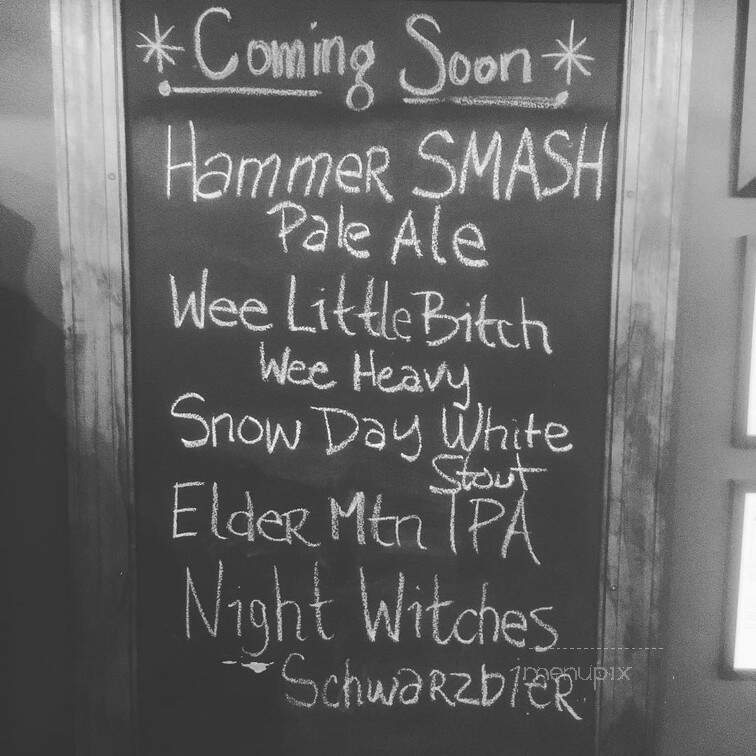 * Coming Soon *
Hammer SMASH
Pale Ale
Wee Little Bitch
Wee Heavy
Snow Day White
Stout
Elder Mtn IPA
Night Witches
Schwarzbier
menupix